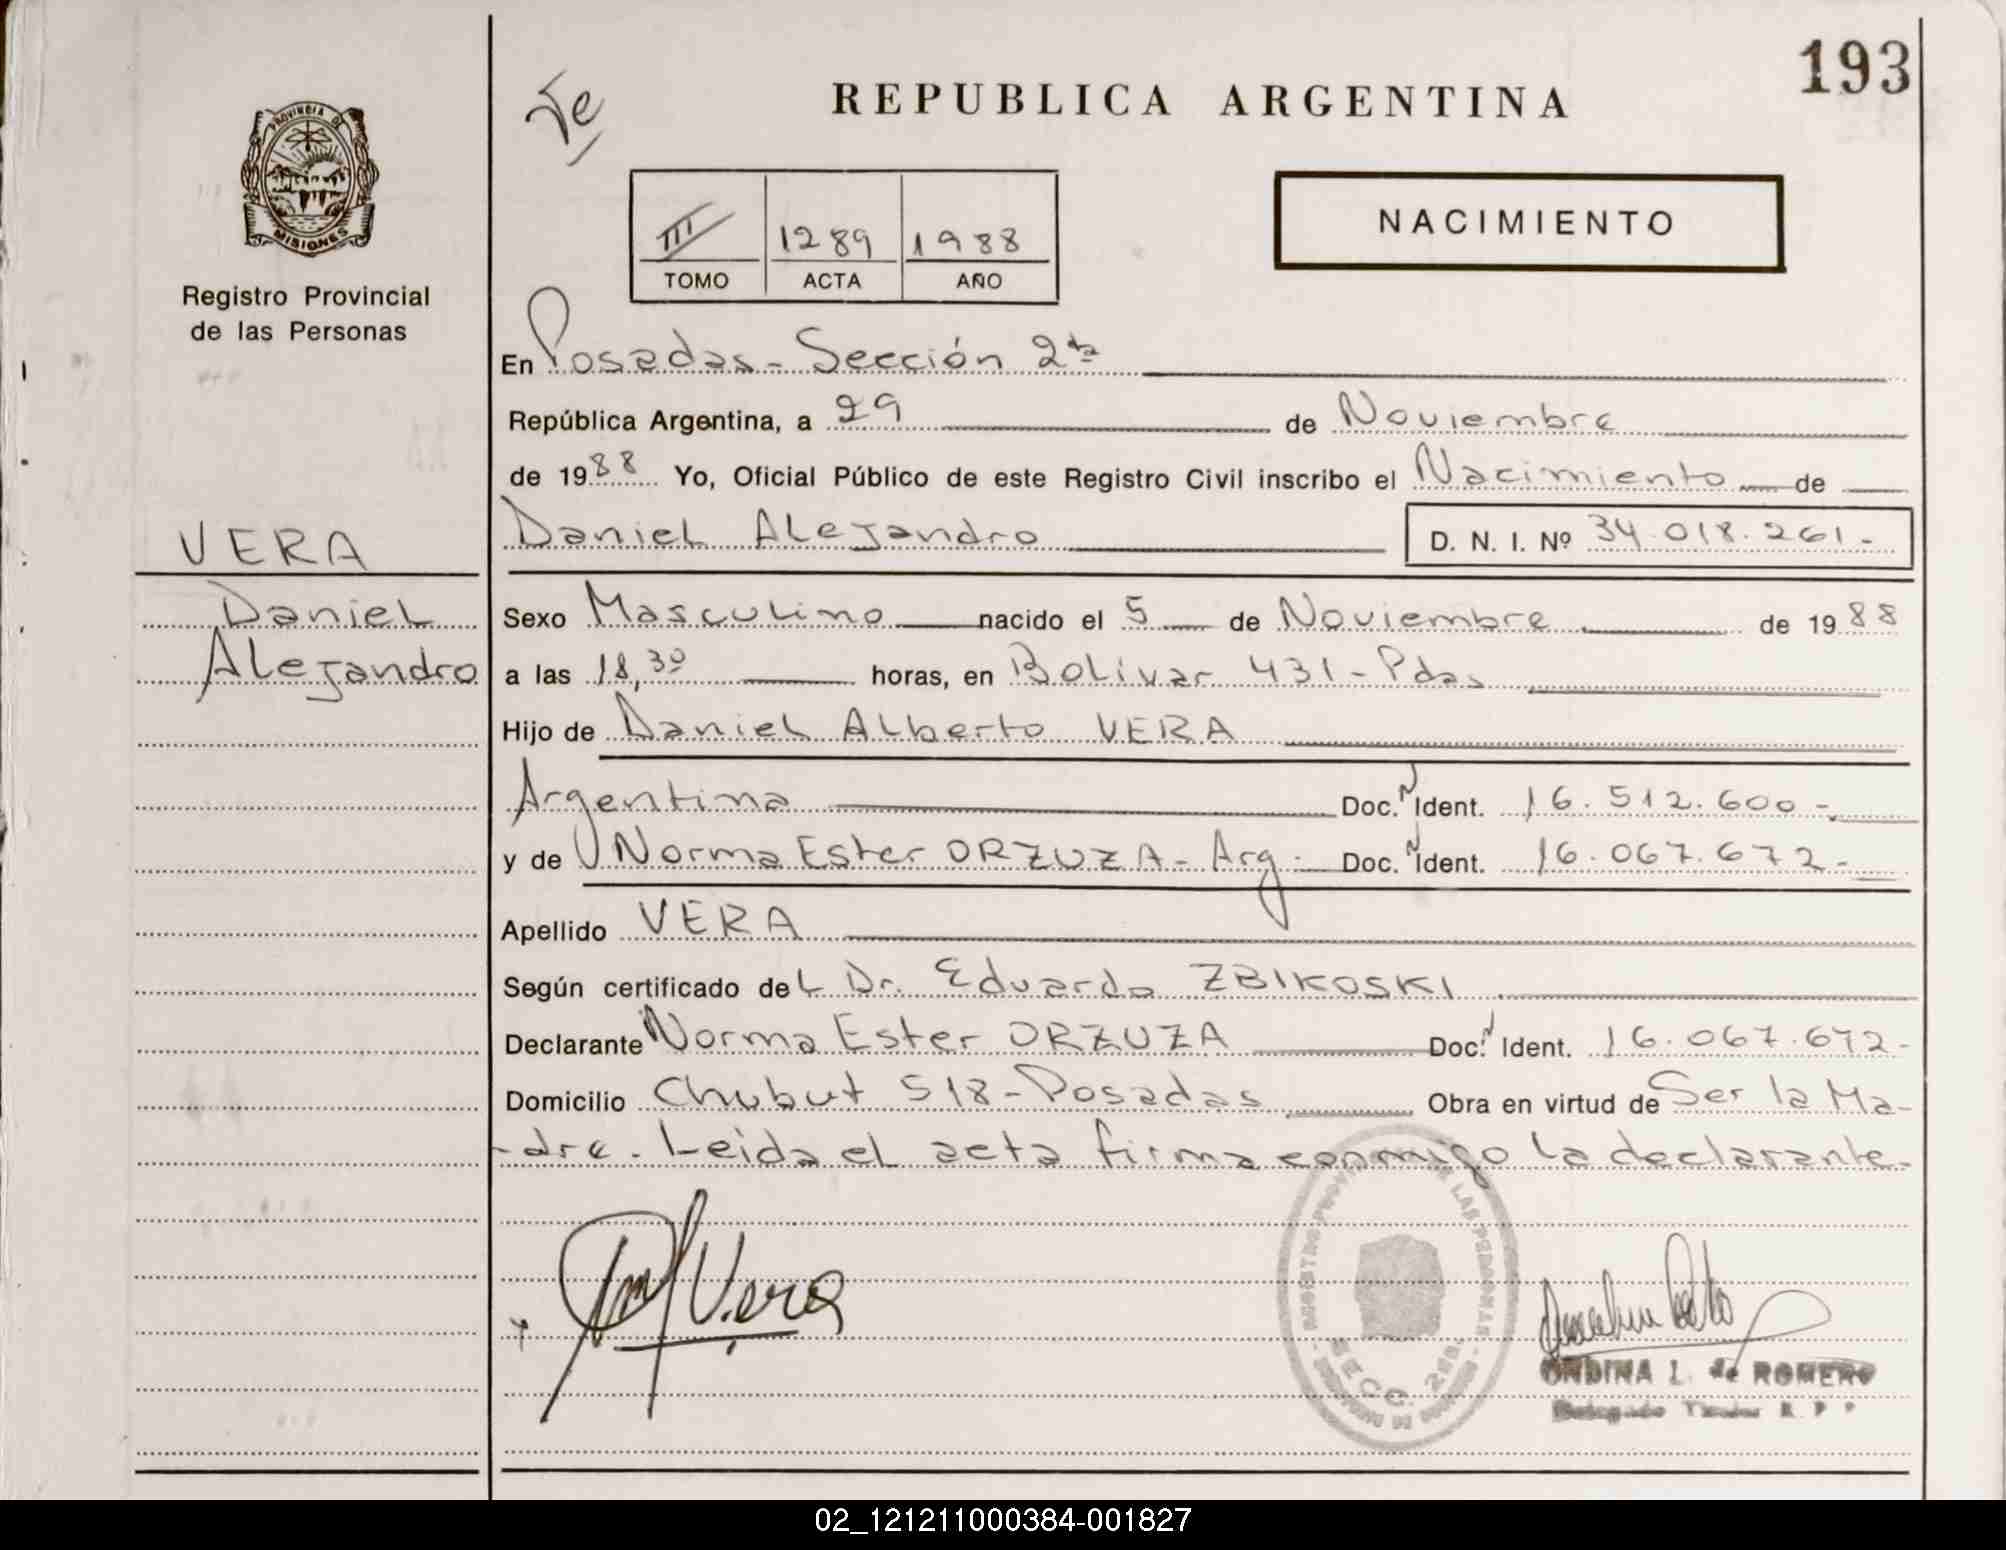 193
REPUBLICA ARGENTINA
PROVINCIA DE
MISIONES
Registro Provincial
de las Personas
III 1289 1988
TOMO ACTA AÑO
NACIMIENTO
En Posadas - Sección 2ta
República Argentina, a 29 de Noviembre
de 1988 Yo, Oficial Público de este Registro Civil inscribo el Nacimiento de
Daniel Alejandro D. N. I. Nº 34.018.261.-
VERA
Daniel
Alejandro
Sexo Masculino nacido el 5 de Noviembre de 1988
a las 18,30 horas, en Bolivar 431 - Pdas
Hijo de Daniel Alberto VERA
Argentina Doc. N Ident. 16.512.600-
y de Norma Ester ORZUZA - Arg. Doc. N Ident. 16.067.672-
Apellido VERA
Según certificado del Dr. Eduardo ZBIKOSKI
Declarante Norma Ester ORZUZA Doc. N Ident. 16.067.672-
Domicilio Chubut 518 - Posadas Obra en virtud de Ser la Ma-
-dre. Leida el acta firma conmigo la declarante.
Vera
SECC. 2
ONDINA L. de ROMERO
02_121211000384-001827